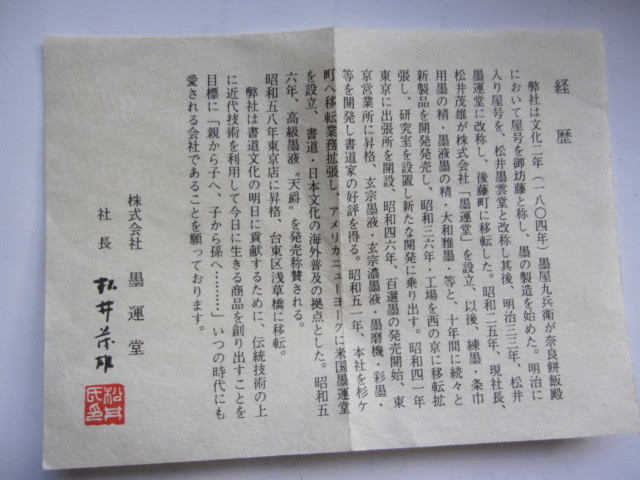 経歴
弊社は文化二年(一八〇四年)墨屋九兵衛が奈良餅飯殿
において屋号を御坊藤と称し、墨の製造を始めた。明治に
入り屋号を、松井墨雲堂と改称し其後、明治三三年、松井
墨運堂に改称し、後藤町に移転した。昭和二五年、現社長、
松井茂雄が株式会社「墨運堂」を設立、以後、練墨・条巾
用墨の精・墨液墨の精・大和雅墨・等と、十年間に続々と
新製品を開発発売し、昭和三六年・工場を西の京に移転拡
張し、研究室を設置し新たな開発に乗り出す。昭和四一年
東京に出張所を開設、昭和四六年、百選墨の発売開始、東
京営業所に昇格、玄宗墨液・玄宗濃墨液・墨磨機・彩墨・
等を開発し書道家の好評を得る。昭和五一年、本社を杉ケ
町へ移転業務拡張し、アメリカニューヨークに米国墨運堂
を設立、書道・日本文化の海外普及の拠点とした。昭和五
六年、高級墨液〝天爵〟を発売称賛される。
昭和五八年東京店に昇格、台東区浅草橋に移転。
弊社は書道文化の明日に貢献するために、伝統技術の上
に近代技術を利用して今日に生きる商品を創り出すことを
目標に「親から子へ、子から孫へ………」いつの時代にも
愛される会社であることを願っております。
株式会社 墨運堂
社長 松井茂雄
松井氏印